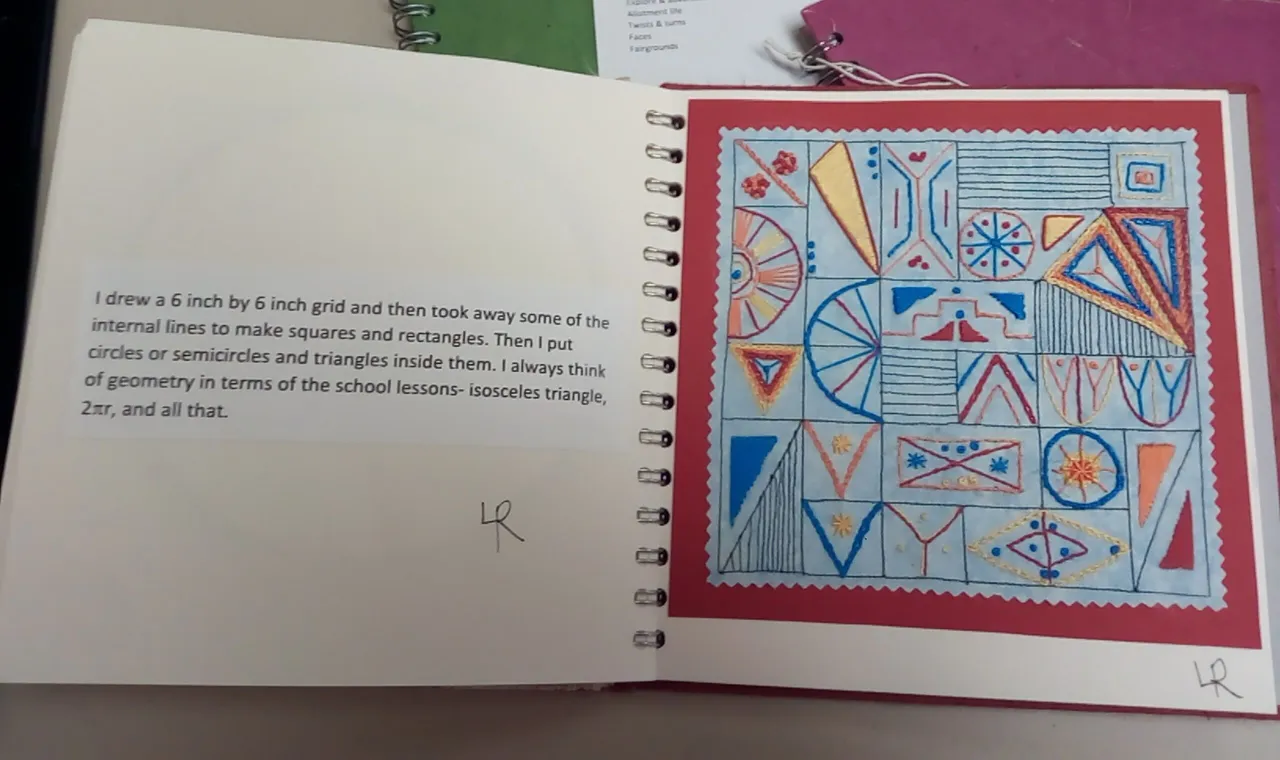 Allotment life
Twists & turns
Faces
Fairgrounds
I drew a 6 inch by 6 inch grid and then took away some of the
internal lines to make squares and rectangles. Then I put
circles or semicircles and triangles inside them. I always think
of geometry in terms of the school lessons- isosceles triangle,
2πr, and all that.
LR
LR